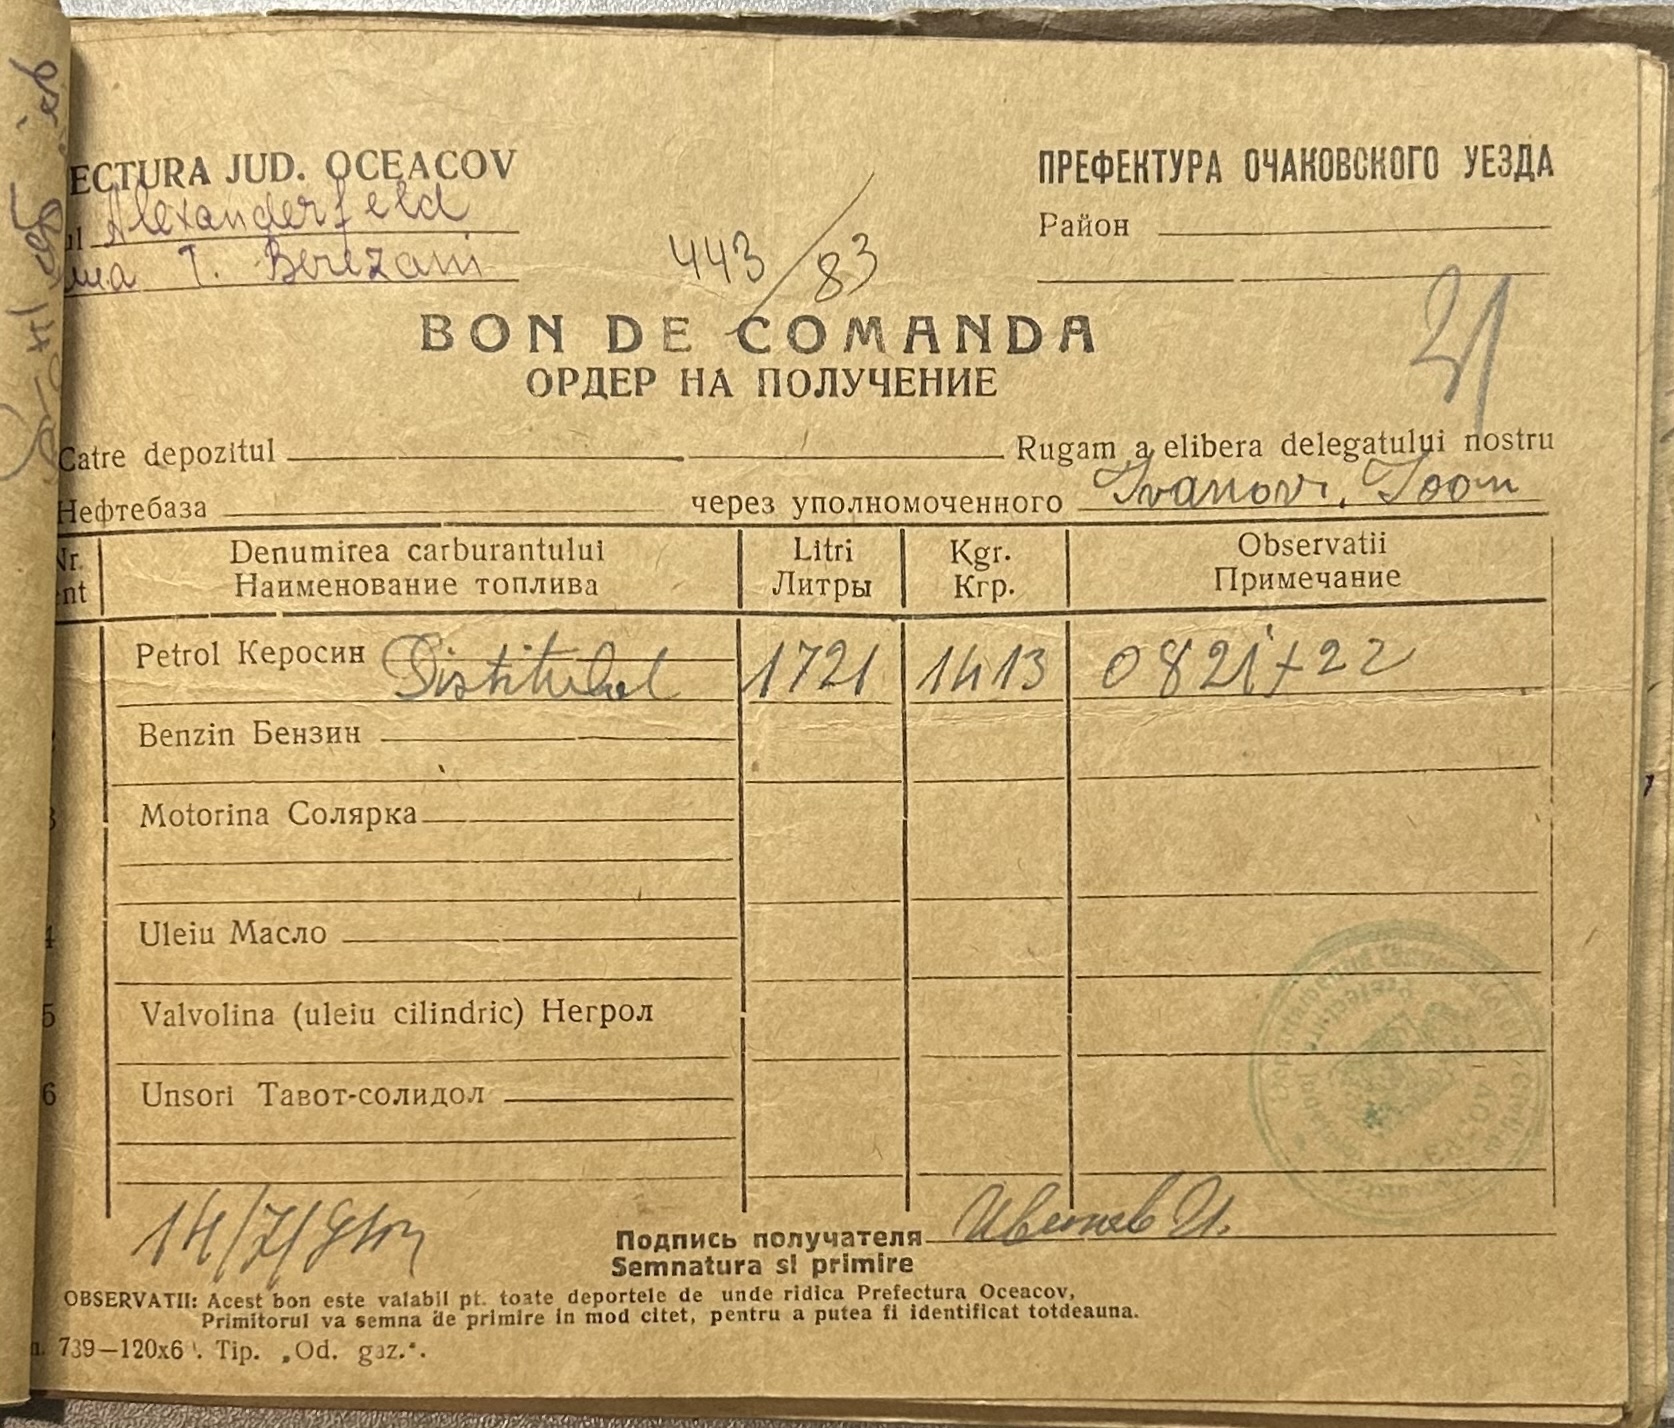 ECTURA JUD. OCEACOV
ПРЕФЕКТУРА ОЧАКОВСКОГО УЕЗДА
ul Alexanderfeld
Район
T. Berezani
443/83
21
BON DE COMANDA
ОРДЕР НА ПОЛУЧЕНИЕ
Catre depozitul Rugam a elibera delegatului nostru
Нефтебаза через уполномоченного Ivanov, Ioon
Nr. Denumirea carburantului Litri Kgr. Observatii
ent Наименование топлива Литры Кгр. Примечание
Petrol Керосин 1721 1413 0821+22
Benzin Бензин
3 Motorina Солярка
4 Uleiu Масло
5 Valvolina (uleiu cilindric) Негрол
6 Unsori Тавот-солидол
14/7/
Подпись получателя Иванов И.
Semnatura si primire
OBSERVATII: Acest bon este valabil pt. toate deportele de unde ridica Prefectura Oceacov,
Primitorul va semna de primire in mod citet, pentru a putea fi identificat totdeauna.
739—120x6 . Tip. „Od. gaz.".